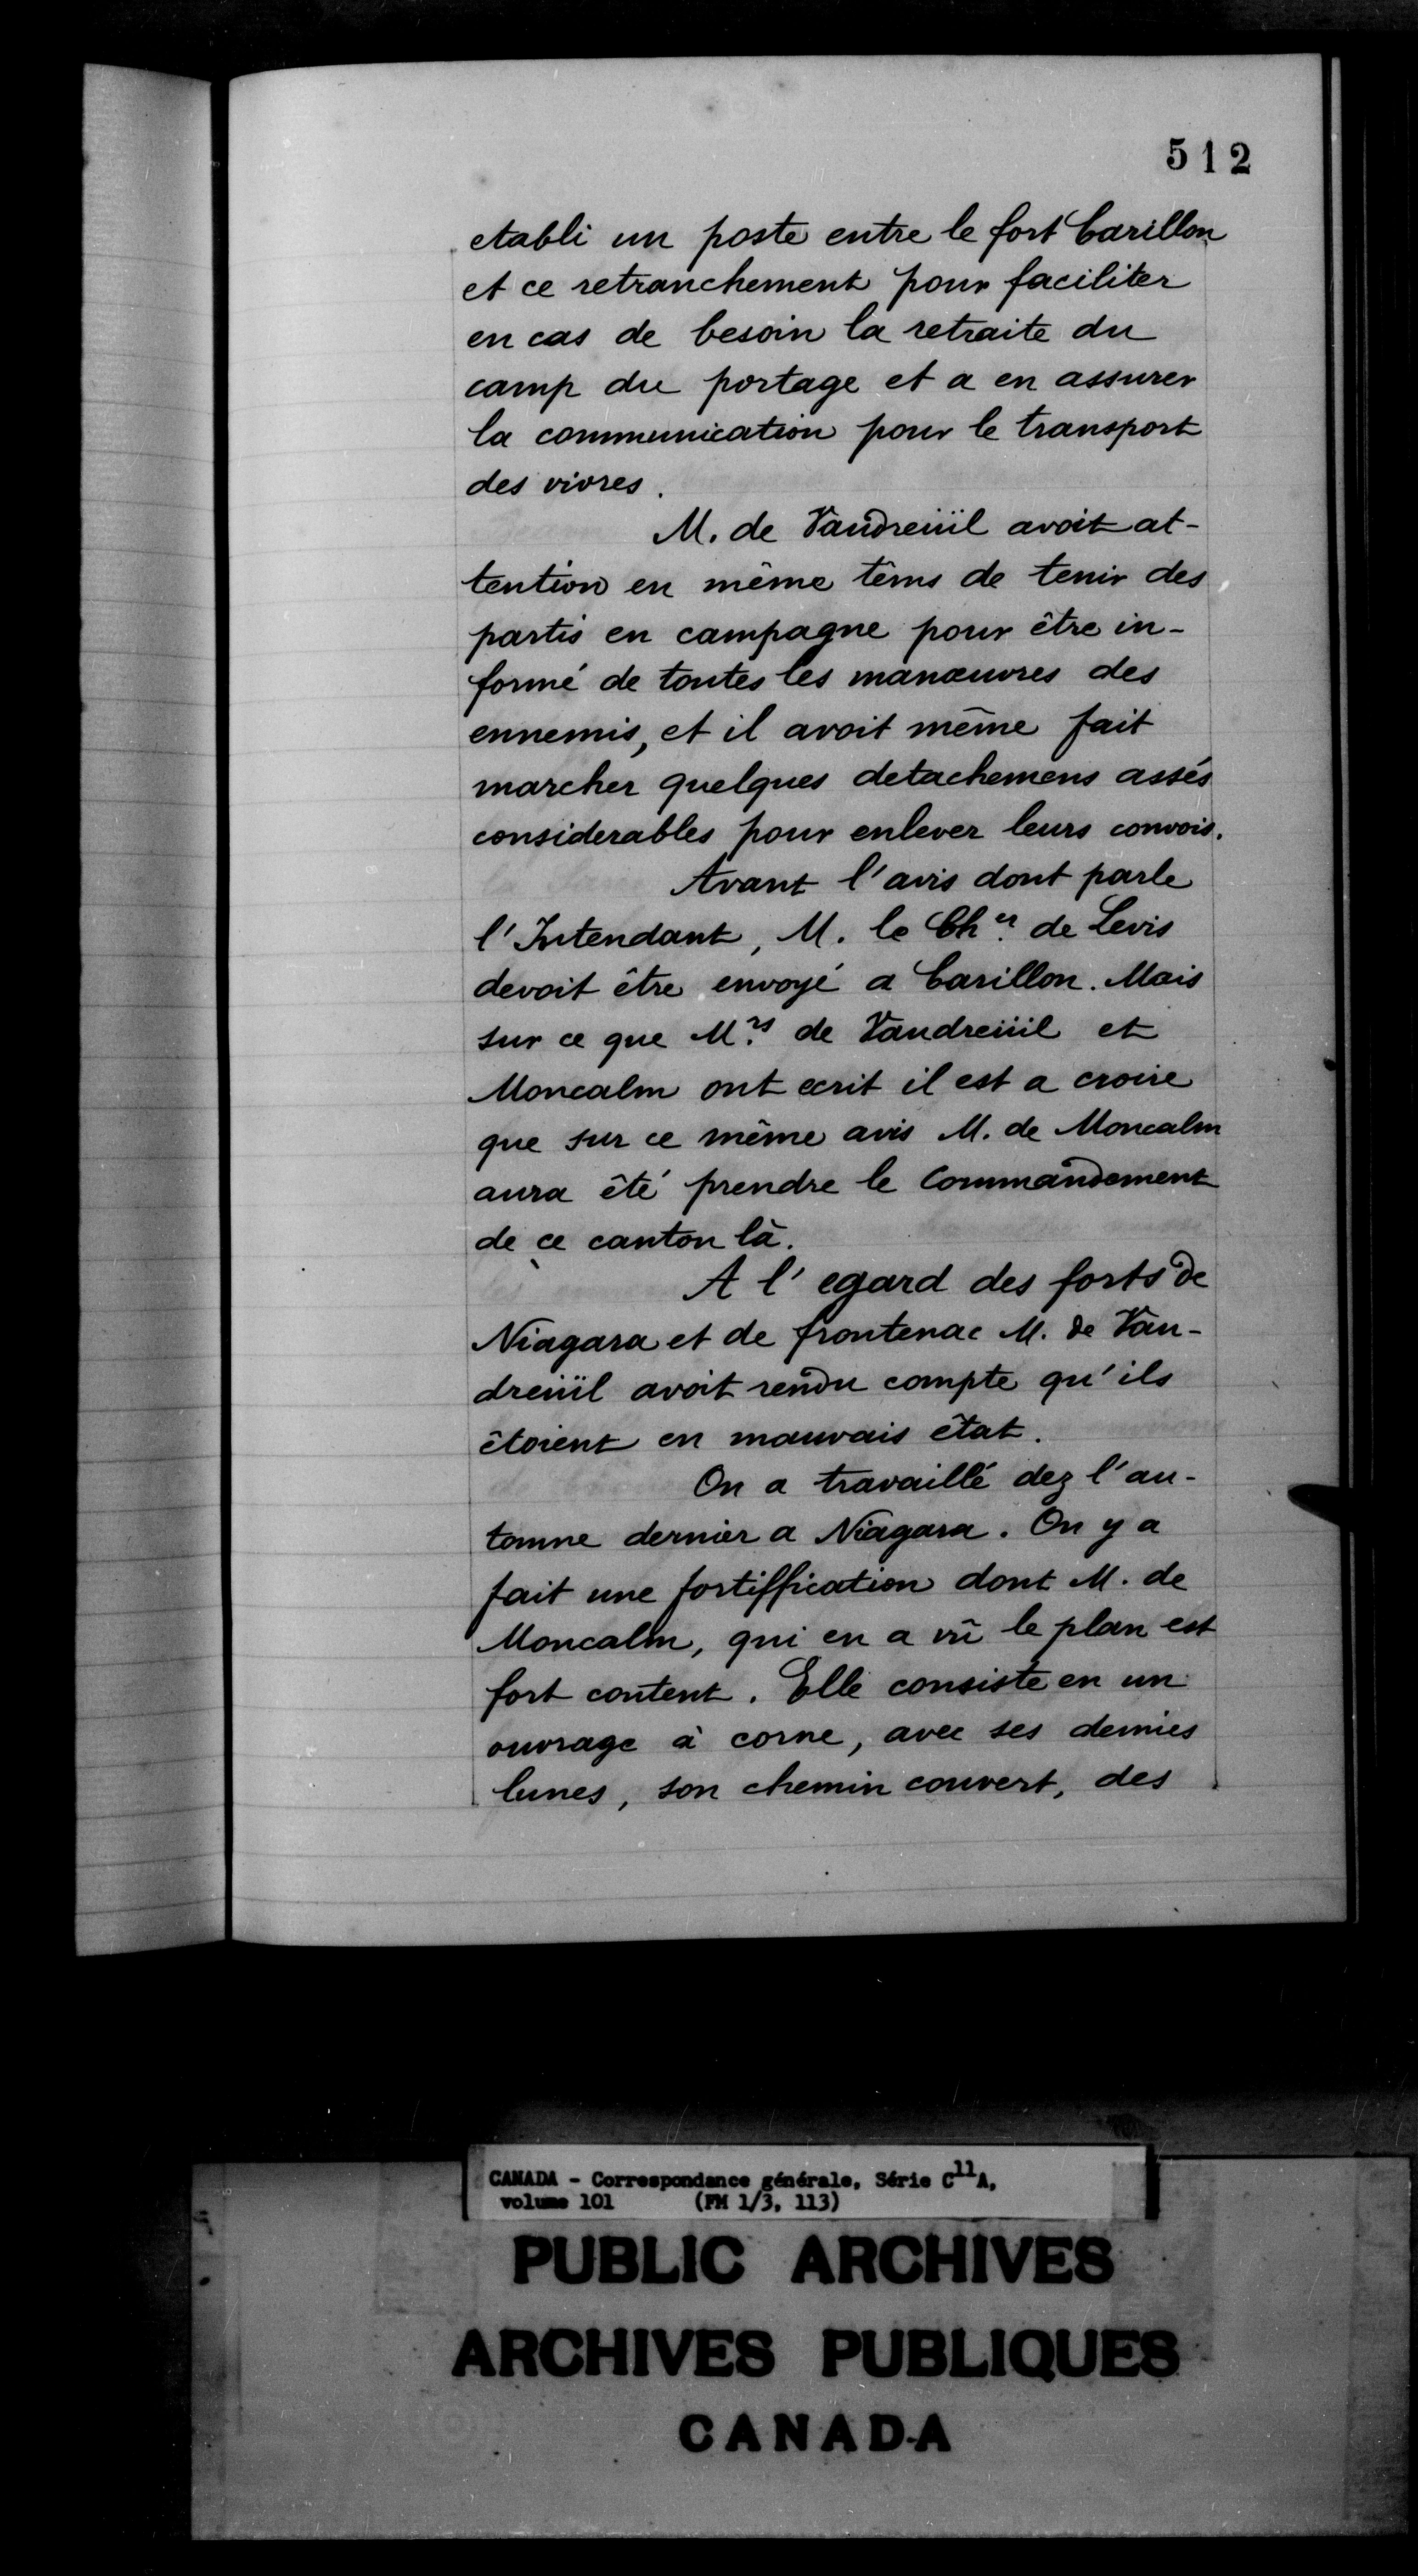 512
etabli un poste entre le fort Carillon
et ce retranchement pour faciliter
en cas de besoin la retraite du
camp du portage et a en assurer
la communication pour le transport
des vivres.
M. de Vaudreüil avoit at-
tention en même têms de tenir des
partis en campagne pour être in-
formé de toutes les manœuvres des
ennemis, et il avoit même fait
marcher quelques detachemens assés
considerables pour enlever leurs convois.
Avant l'avis dont parle
l'Intendant, M. le Ch.er de Levis
devoit être envoyé a Carillon. Mais
sur ce que M.rs de Vaudreüil et
Moncalm ont ecrit il est a croire
que sur ce même avis M. de Moncalm
aura êté prendre le Commandement
de ce canton là.
A l'egard des forts de
Niagara et de frontenac M. de Vau-
dreüil avoit rendu compte qu'ils
êtoient en mauvais êtat.
On a travaillé dez l'au-
tomne dernier a Niagara. On y a
fait une fortiffication dont M. de
Moncalm, qui en a vû le plan est
fort content. Elle consiste en un
ouvrage à corne, avec ses demies
lunes, son chemin couvert, des
CANADA - Correspondance générale, Série C11A,
volume 101 (FM 1/3, 113)
PUBLIC ARCHIVES
ARCHIVES PUBLIQUES
CANADA